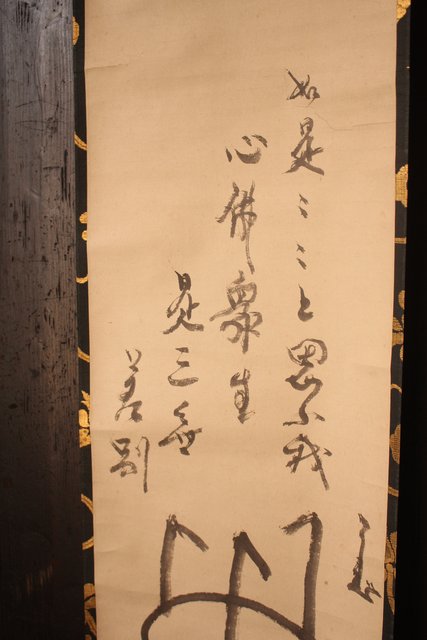 如是〻〻と思ふ我
心佛衆生
是三無
差別